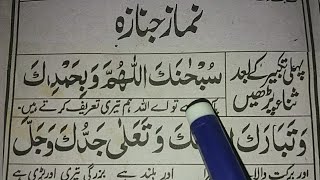 نماز جنازہ
پہلی تکبیر کے بعد
ثناء پڑھیں
سُبْحٰنَكَ اللّٰهُمَّ وَبِحَمْدِكَ
تو اے اللہ ہم تیری تعریف کرتے ہیں۔
وَتَبَارَكَ وَتَعَالٰى جَدُّكَ وَجَلَّ
اور برکت والا اور بلند ہے بزرگی تیری اور بڑی ہے